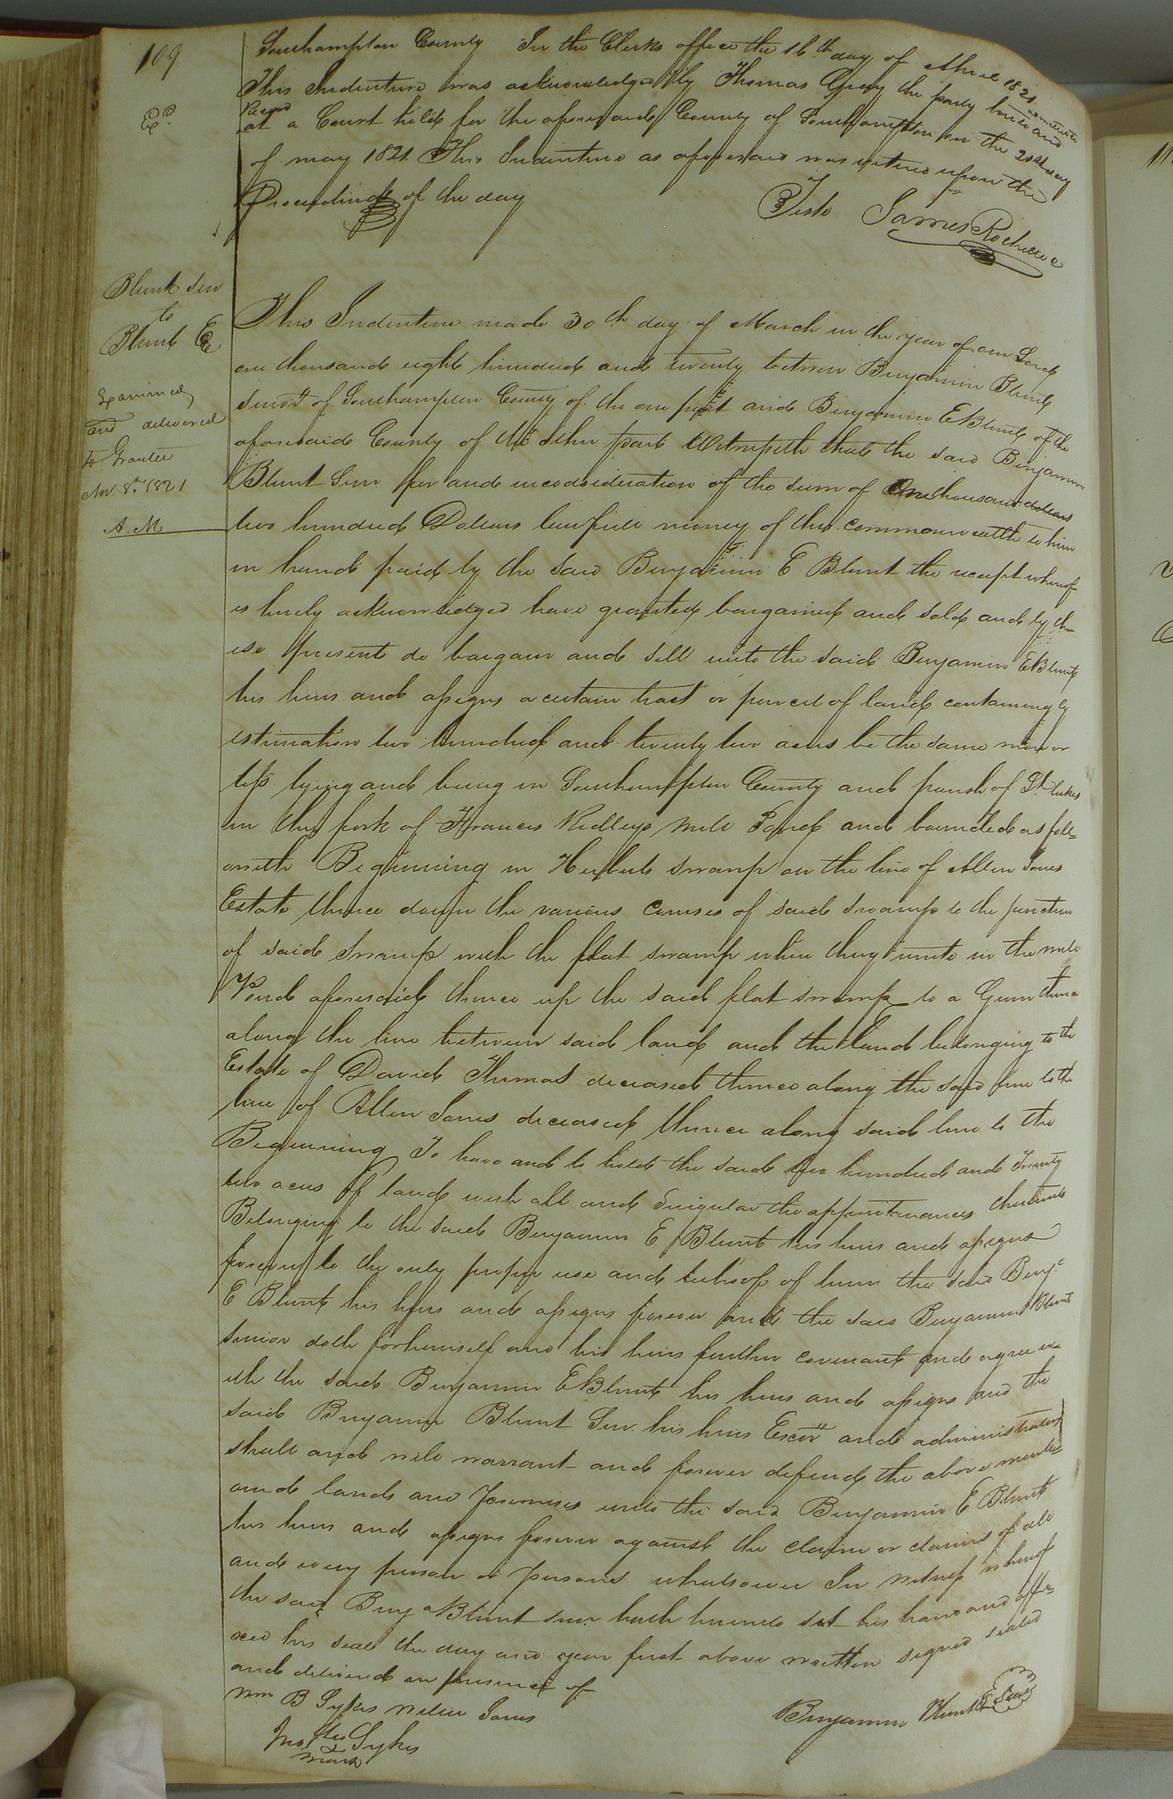 109
Southampton County In the Clerks office the 16th day of April 1821
This Indenture was acknowledged by Thomas Gray the party thereto and
at a Court held for the aforesaid County of Southampton on the 21st day
Exd
of may 1821 This Indenture as aforesaid was entered upon the
Proceedings of the day
Teste James Rochelle
Blunt Senr
to
Blunt E
Examined
and delivered
to Grantee
Nov 8th 1821
A. M
This Indenture made 30th day of March in the year of our Lord
one thousand eight hundred and twenty between Benjamin Blunt
Senr of Southampton County of the one part and Benjamin E Blunt of the
aforesaid County of the other part Witnesseth that the said Benjamin
Blunt Senr for and in consideration of the sum of One thousand dollars
two hundred Dollars lawfull money of this commonwealth to him
in hand paid by the said Benjamin E Blunt the receipt whereof
is hereby acknowledged have granted bargained and sold and by th-
ese present do bargain and sell unto the said Benjamin E Blunt
his heirs and assigns a certain tract or parcel of land containing by
estimation two hundred and twenty two acres be the same more or
less lying and being in Southampton County and parish of St Lukes
in the fork of Francis Ridleys mill Pond and bounded as foll=
oweth Beginning in Herberts swamp on the line of Allen Jones
Estate thence down the various courses of said swamp to the junction
of said swamp with the flat swamp where they unite in the mill
Pond aforesaid thence up the said flat swamp to a Gum thence
along the line between said land and the land belonging to the
Estate of David Thomas deceased thence along the said line to the
line of Allen Jones deceased thence along said line to the
Beginning To have and to hold the said two hundred and Twenty
two acres of land with all and singular the appurtenances thereunto
Belonging to the said Benjamin E Blunt his heirs and assigns
forever to the only proper use and behoof of him the said Benja
E Blunt his heirs and assigns forever and the said Benjamin Blunt
senior doth for himself and his heirs further covenant and agree w
ith the said Benjamin E Blunt his heirs and assigns and the
said Benjamin Blunt Senr. his heirs Excrs and administrators
shall and will warrant and forever defend the above
and lands and Premises unto the said Benjamin E Blunt
his heirs and assigns forever against the claim or claims of all
and every person or persons whatsoever In witness whereof
the said Benja Blunt senr hath hereunto set his hand and affi=
xed his seal the day and year first above written signed sealed
and delivered in presence of
Wm B Sykes Jones
Benjamin Blunt Seal
his
Sykes
mark